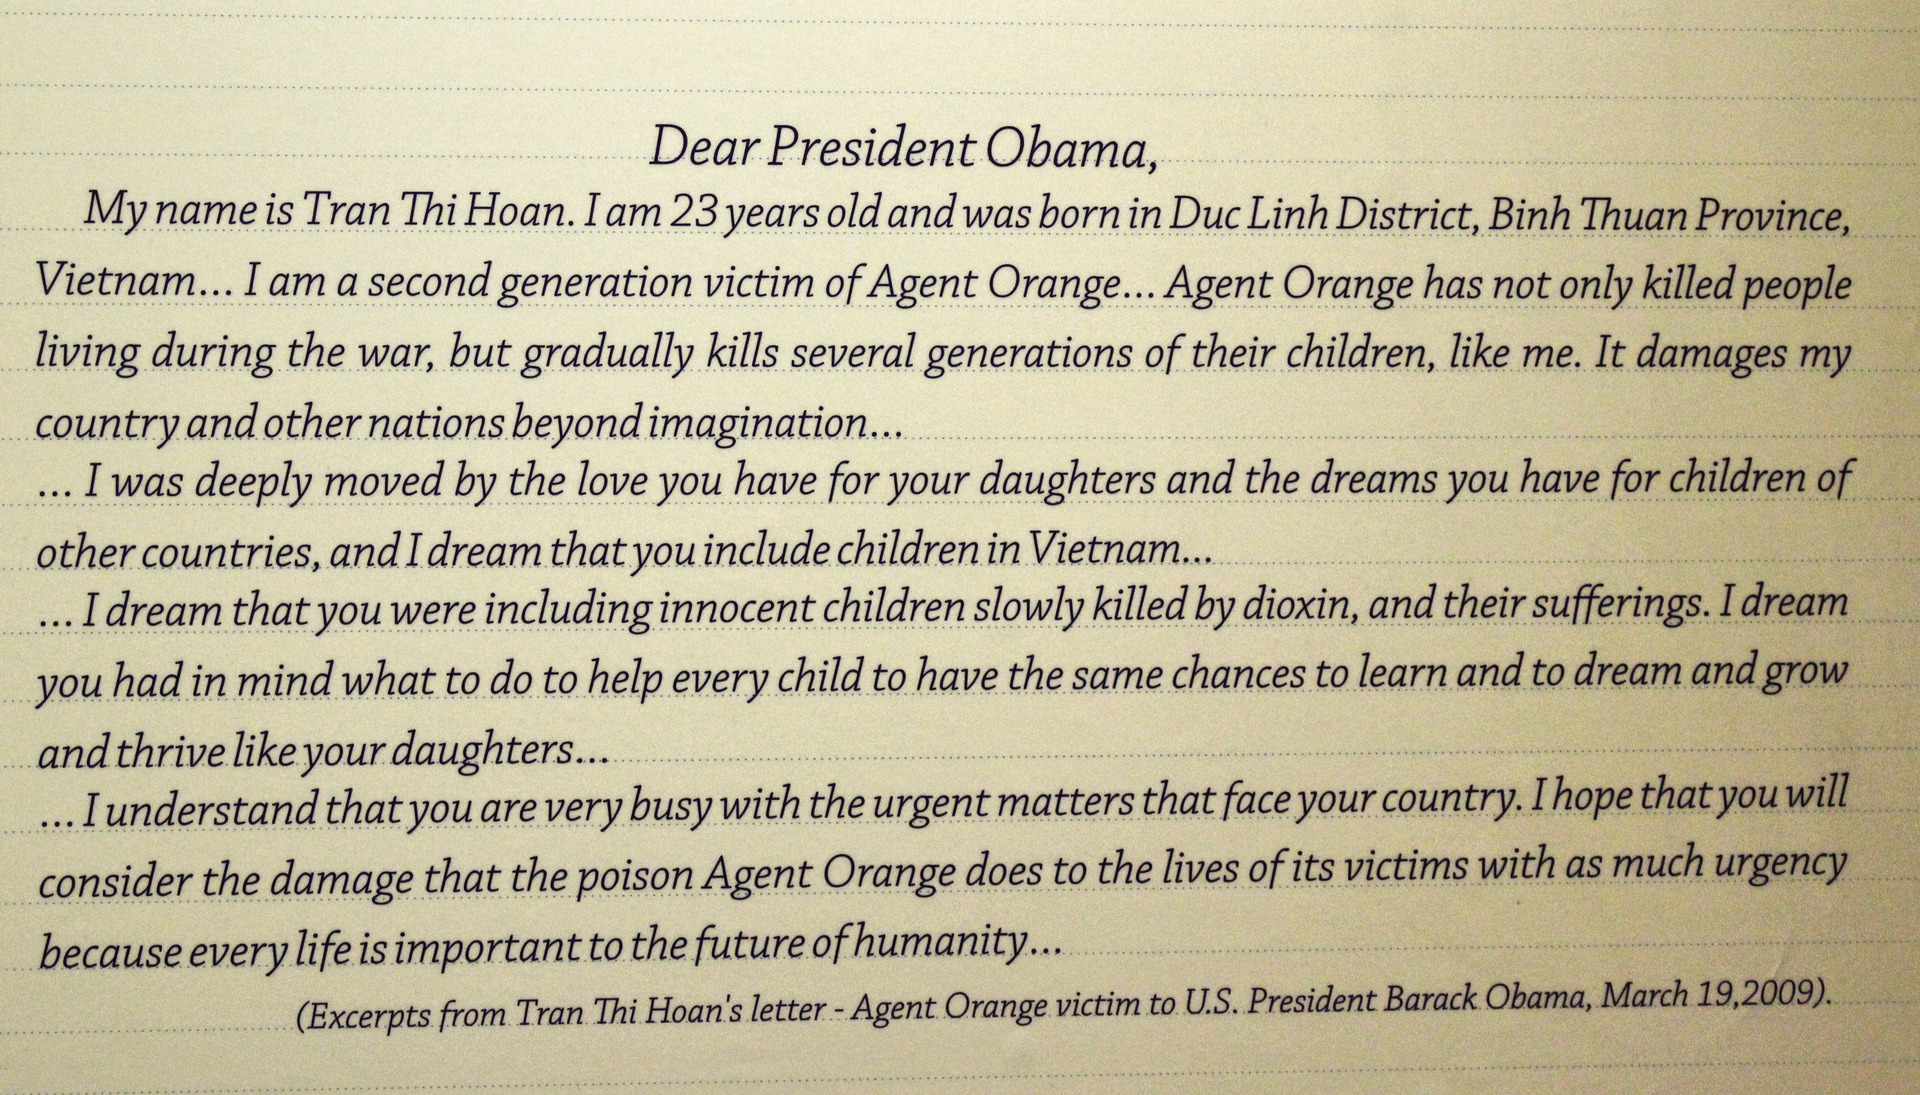 Dear President Obama,
My name is Tran Thi Hoan. I am 23 years old and was born in Duc Linh District, Binh Thuan Province,
Vietnam... I am a second generation victim of Agent Orange... Agent Orange has not only killed people
living during the war, but gradually kills several generations of their children, like me. It damages my
country and other nations beyond imagination...
... I was deeply moved by the love you have for your daughters and the dreams you have for children of
other countries, and I dream that you include children in Vietnam...
... I dream that you were including innocent children slowly killed by dioxin, and their sufferings. I dream
you had in mind what to do to help every child to have the same chances to learn and to dream and grow
and thrive like your daughters...
... I understand that you are very busy with the urgent matters that face your country. I hope that you will
consider the damage that the poison Agent Orange does to the lives of its victims with as much urgency
because every life is important to the future of humanity...
(Excerpts from Tran Thi Hoan's letter - Agent Orange victim to U.S. President Barack Obama, March 19,2009).